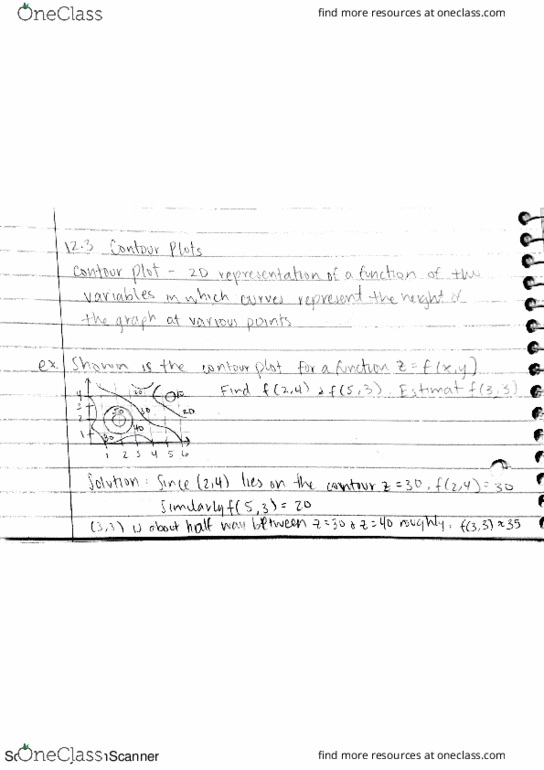 OneClass
find more resources at oneclass.com
12.3 Contour Plots
Contour plot - 2D representation of a function of two
variables in which curves represent the height of
the graph at various points
ex. Shown is the contour plot for a function z=f(x,y)
Find f(2,4) & f(5,3). Estimat f(3,3)
4
3
2
1
50
30
40
30
20
10
20
1 2 3 4 5 6
Solution: Since (2,4) lies on the contour z=30, f(2,4)=30
Similarly f(5,3)=20
(3,3) is about half way between z=30 & z=40 roughly. f(3,3)≈35
OneClass
Scanner
find more resources at oneclass.com